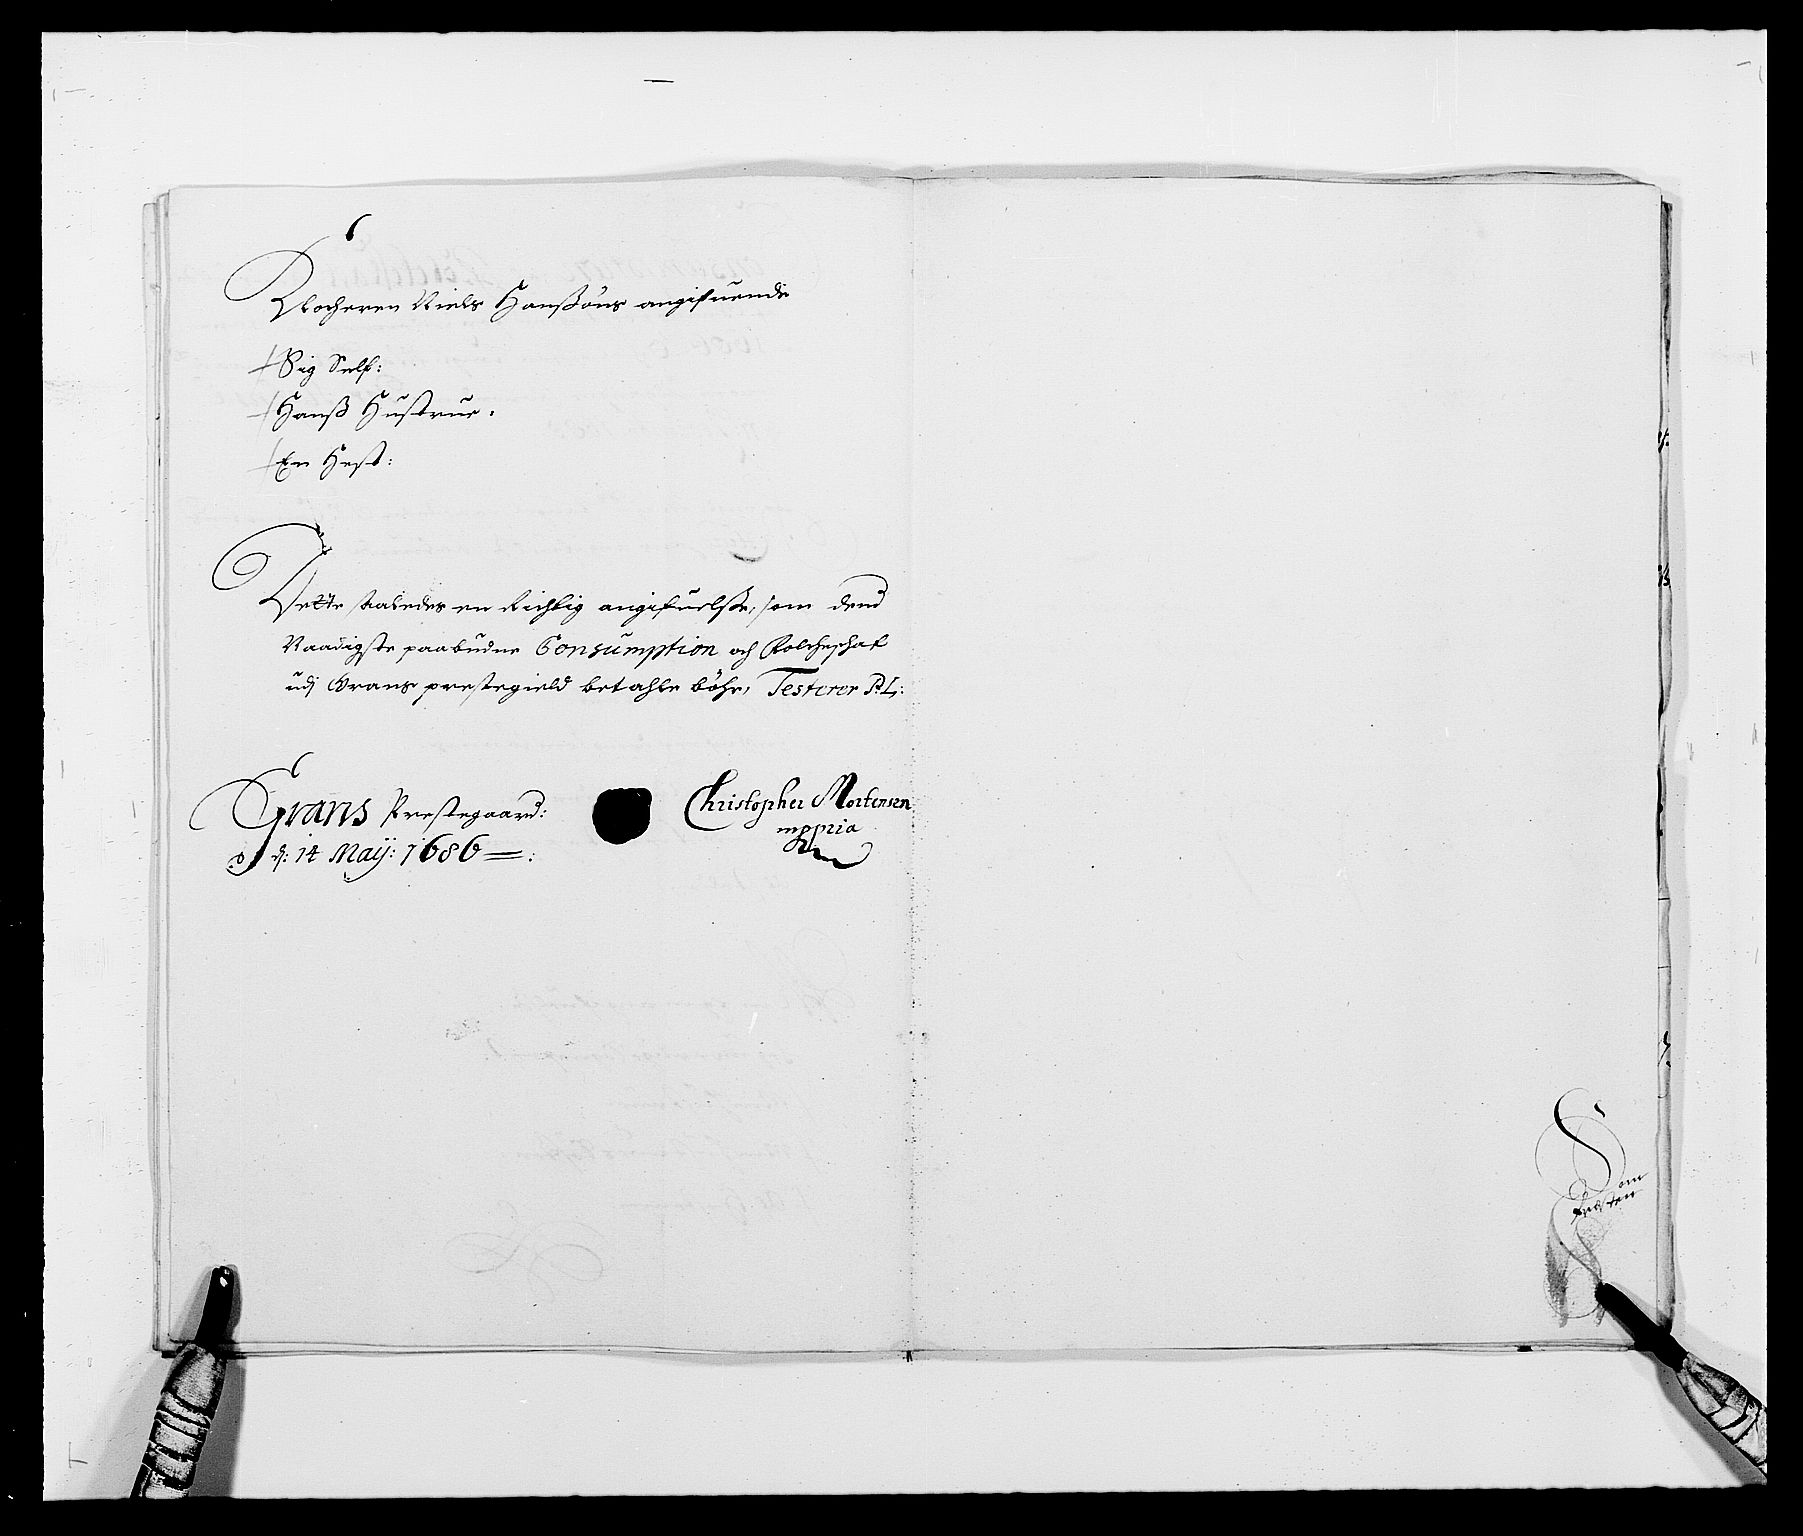 Klocheren Niels Hanßöns angifuende
Sig Self:
Hanß Hustrue.
En Hest:
Dette saaledes en Richtig angifuelse, som dend
Naadigste paabudne Consumption och Folcheschat
udj Grans prestegield betahle böhr, Testerer P: L:
Grans Prestegaard:
d: 14 Maij: 1686
Christopher Mortensen
mppria